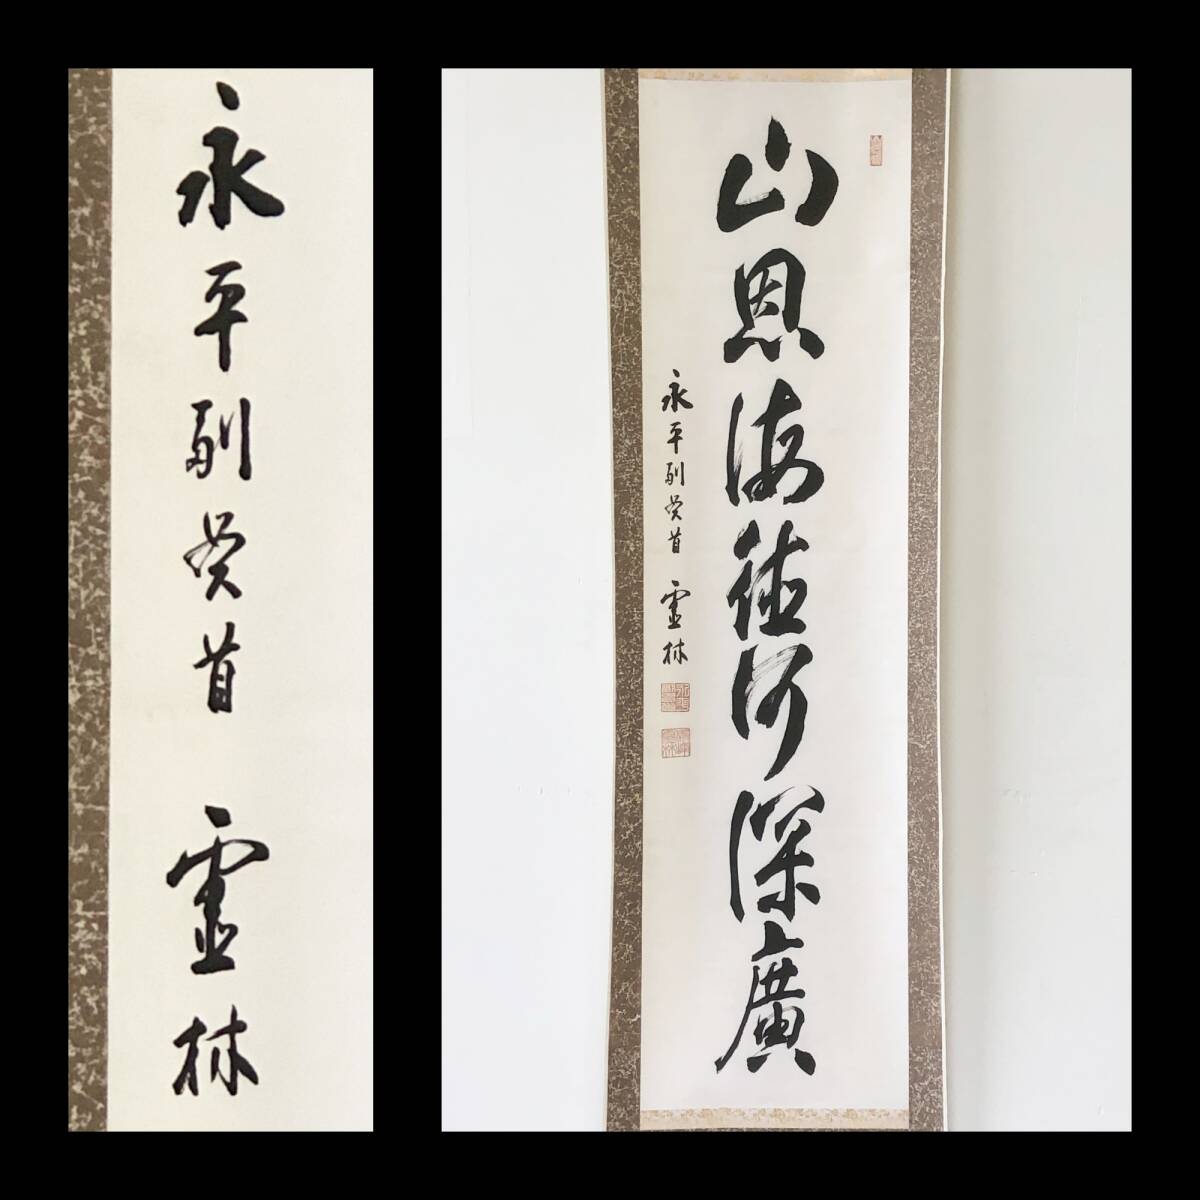 永平副貫首 霊林
山恩海徳何深廣
永平副貫首 霊林